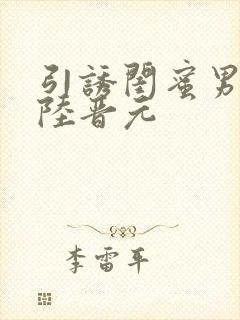 引誘閨蜜男
陸晋元
李雷平